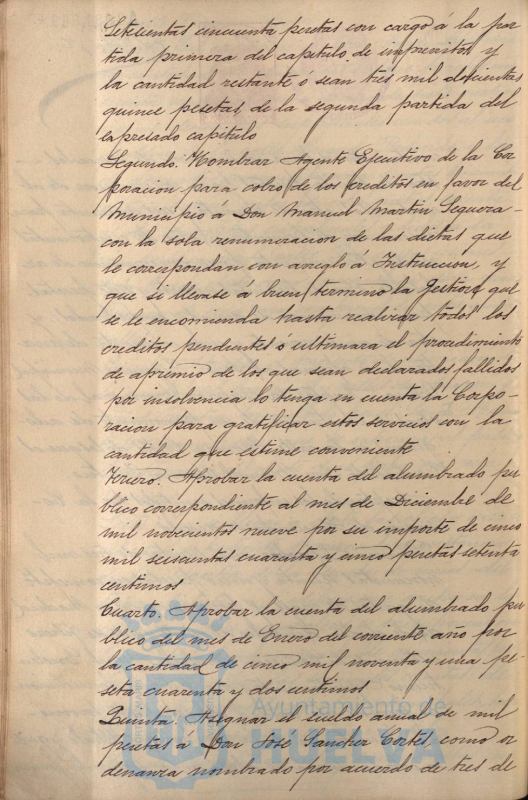 Setecientas cincuenta pesetas con cargo á la par
tida primera del capitulo de imprevistos y
la cantidad restante ó sean tres mil doscientas
quince pesetas de la segunda partida del
expresado capitulo
Segundo. Nombrar Agente Ejecutivo de la Cor
poracion para cobro de los creditos en favor del
Municipio á Don Manuel Martin Seguera
con la sola renumeracion de las dietas que
le correspondan con arreglo á Instruccion, y
que si llevase á buen termino la gestion que
se le encomienda hasta realizar todos los
creditos pendientes o ultimara el procedimiento
de apremio de los que sean declarados fallidos
por insolvencia lo tenga en cuenta la Corpo-
racion para gratificar estos servicios con la
cantidad que estime conveniente
Tercero. Aprobar la cuenta del alumbrado pu
blico correspondiente al mes de Diciembre de
mil novecientos nueve por su importe de cinco
mil seiscientas cuarenta y cinco pesetas setenta
centimos
Cuarto. Aprobar la cuenta del alumbrado pu
blico del mes de Enero del corriente año por
la cantidad de cinco mil noventa y una pe-
seta cuarenta y dos centimos
Quinta. Asignar el sueldo anual de mil
pesetas á Don José Sanchez Cortés, como or
denanza nombrado por acuerdo de tres de
Ayuntamiento de
HUELVA